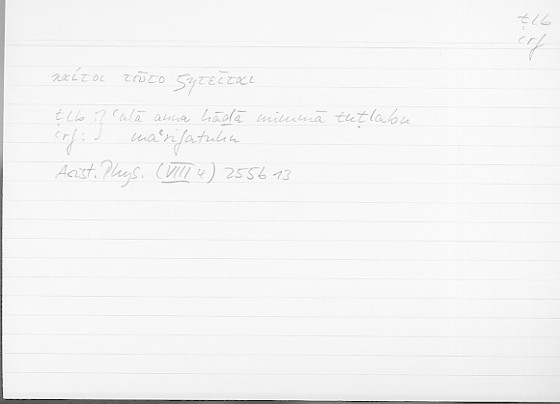 ṭlb
ʿrf
καίτοι τοῦτο ζητεῖται
ṭlb :} ʿalā anna hāḏā mimmā tuṭlabu
ʿrf :} maʿrifatuhu
Arist. Phys. (VIII 4) 255b 13